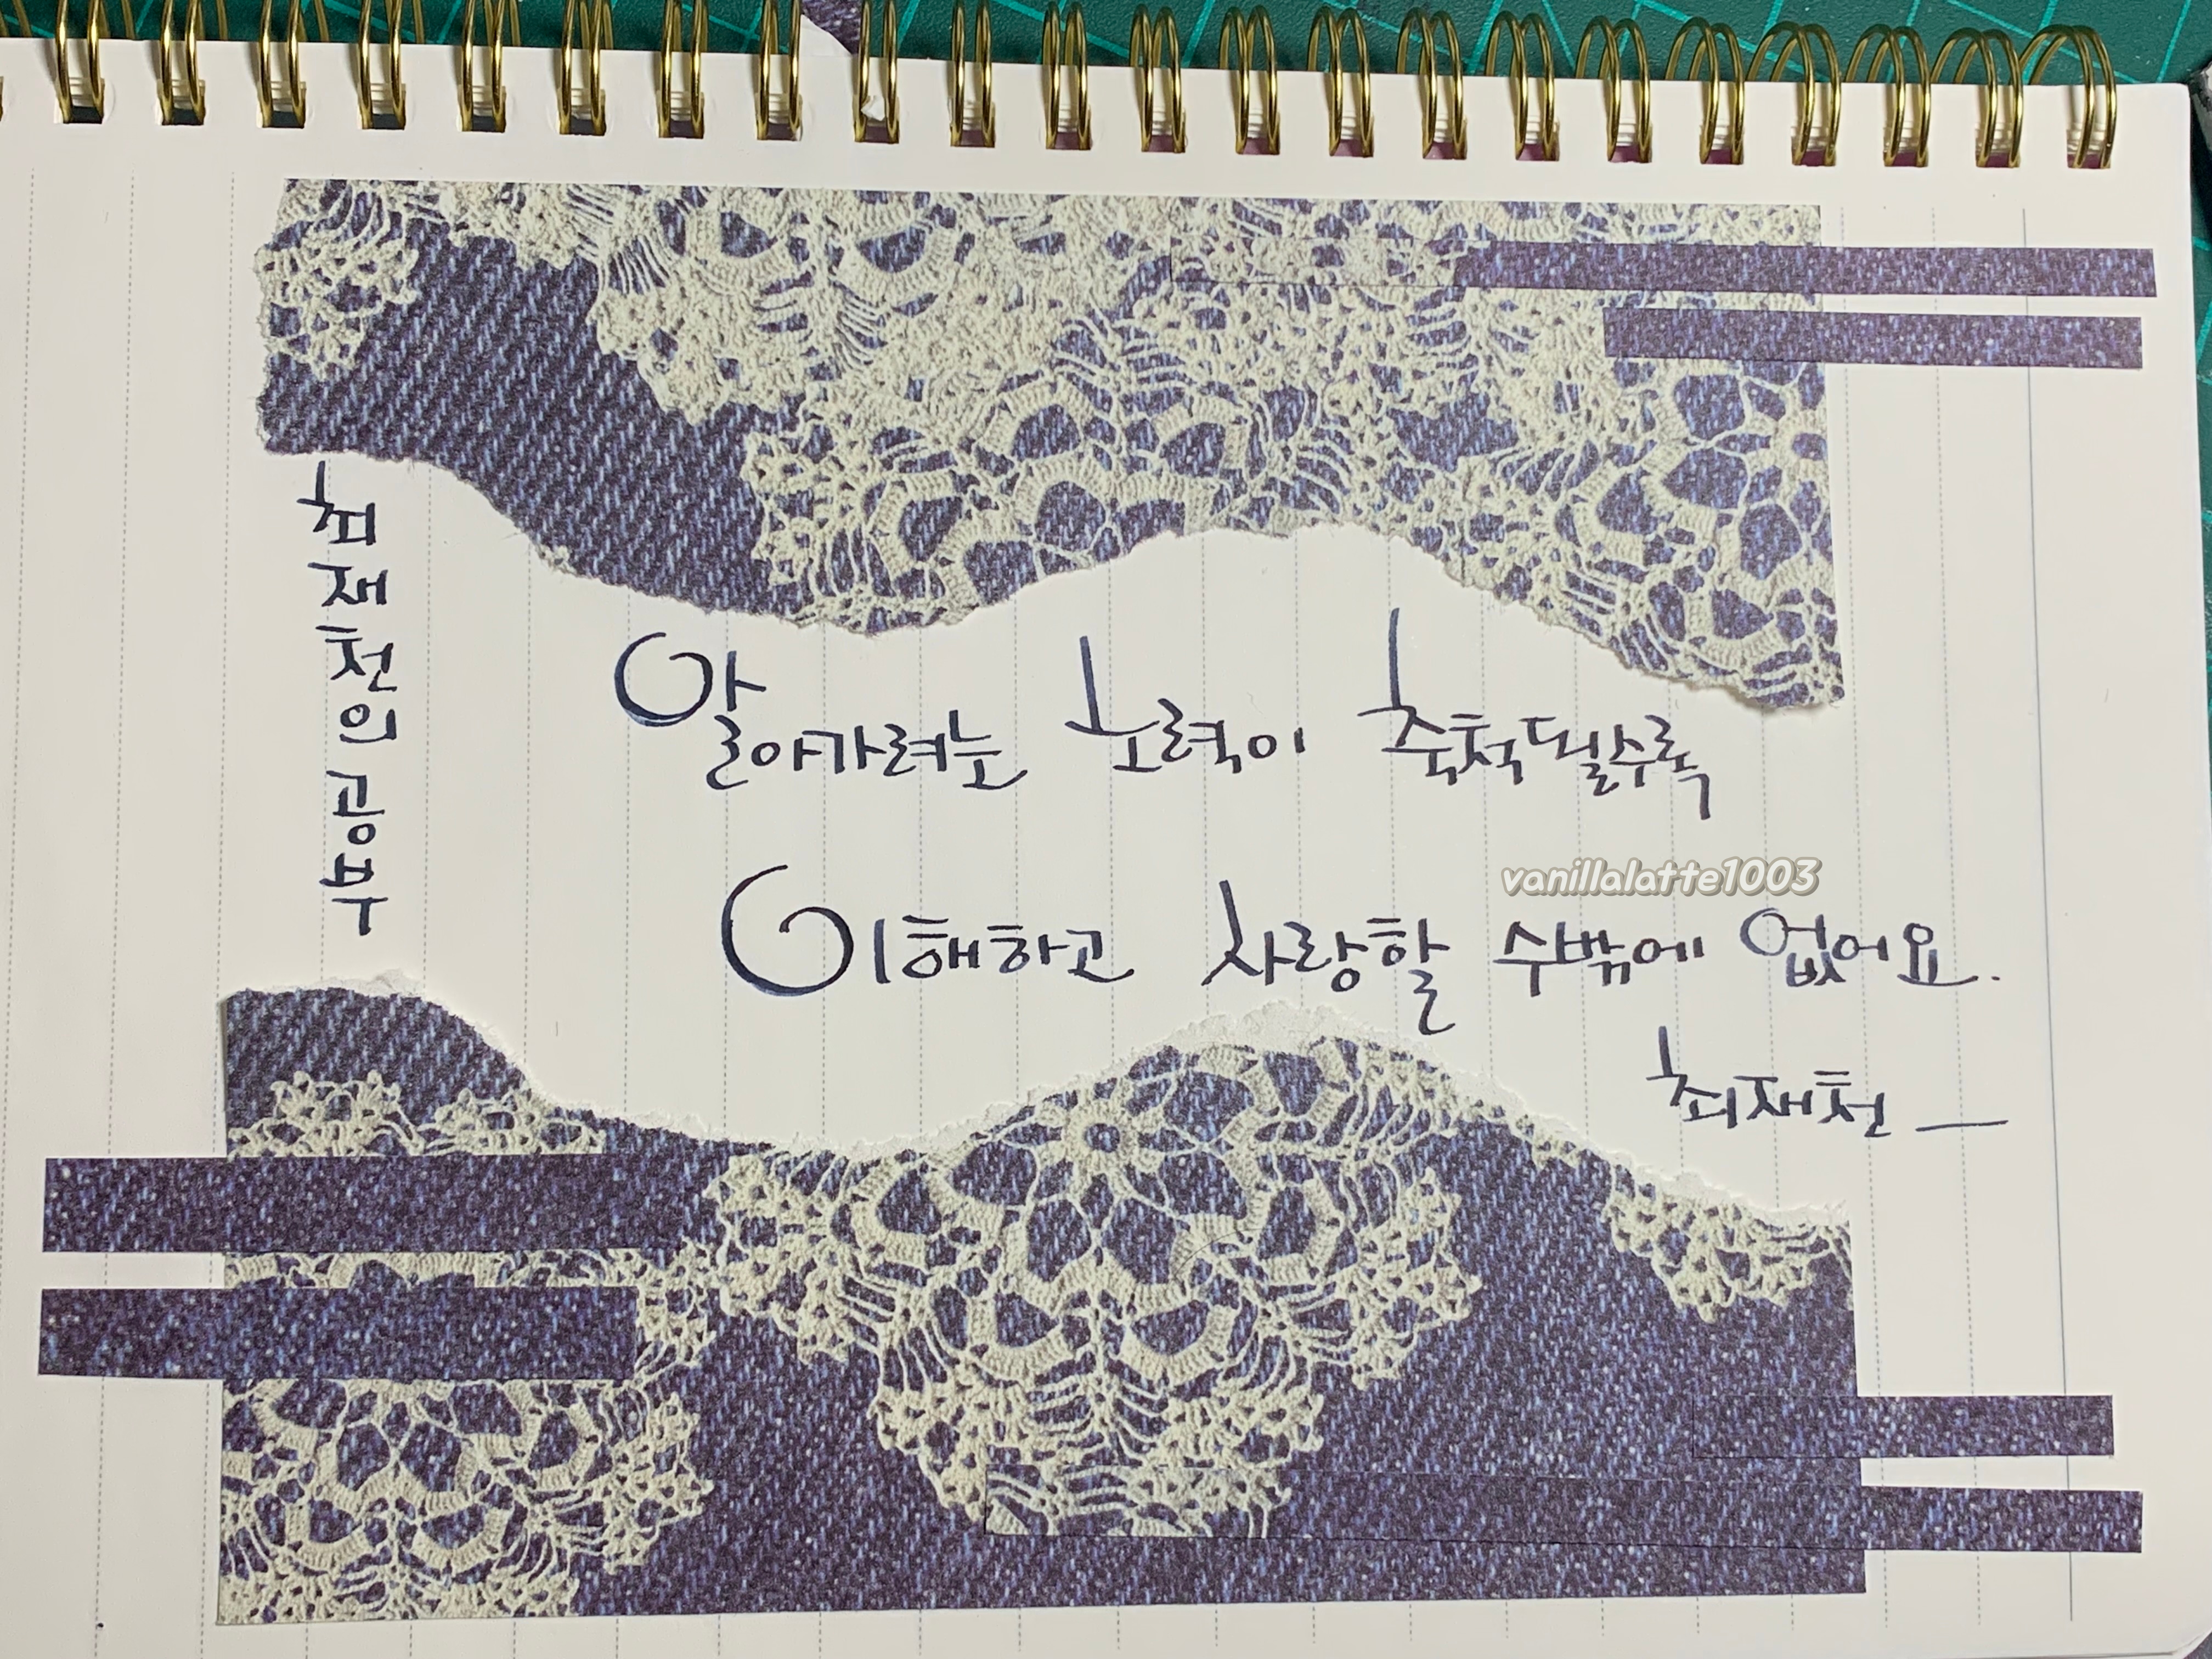 최재천의 공부
알아가려는 노력이 축척될수록
이해하고 사랑할 수밖에 없어요.
최재천 —
vanillalatte1003